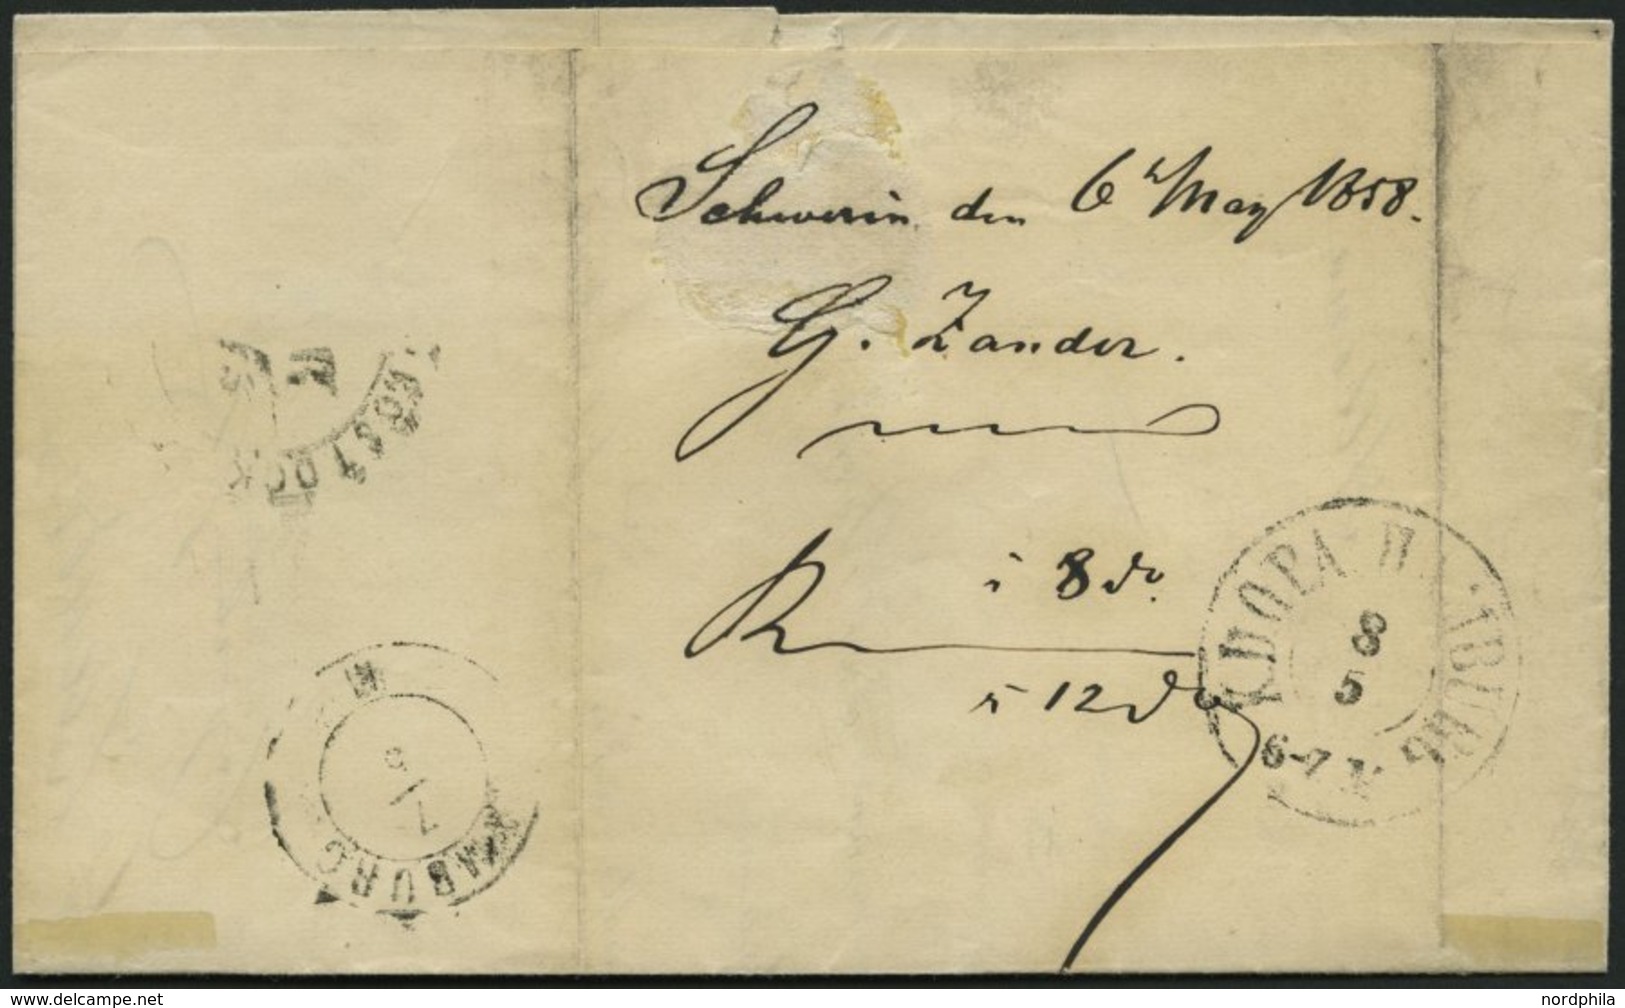 Schwerin den 6t May 1858.
G. Zander.
R
8 do.
12 do
ROSTOCK
HAMBURG
7/5
K.D.O.P.A. HAMBURG
8
5
6-7
www.delcampe.net
nordphila